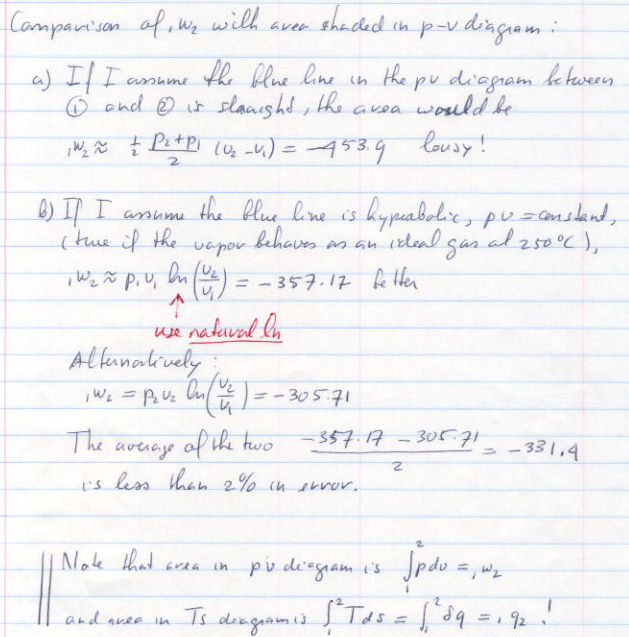 Comparison of ₁w₂ with area shaded in p-v diagram:
a) If I assume the blue line in the pv diagram between
① and ② is straight, the area would be
₁w₂ ≈ + (p₂+p₁)/2 (v₂-v₁) = -453.9 lousy!
b) If I assume the blue line is hyperbolic, pv = constant,
(true if the vapor behaves as an ideal gas at 250°C),
₁w₂ ≈ p₁v₁ ln(v₂/v₁) = -357.17 better
↑
use natural ln
Alternatively:
₁w₂ = p₂v₂ ln(v₂/v₁) = -305.71
The average of the two (-357.17 - 305.71)/2 = -331.4
is less than 2% in error.
Note that area in pv diagram is ∫₁² pdv = ₁w₂
and area in Ts diagram is ∫₁² Tds = ∫₁² δq = ₁q₂!